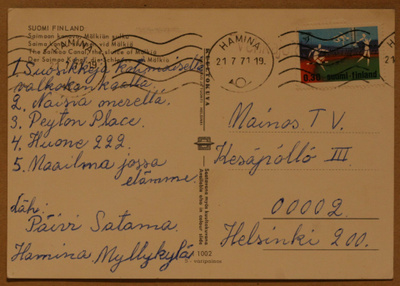 SUOMI FINLAND
Saimaan kanava, Mälkiän sulku
Saima kanal, slussen vid Mälkiä
The Saimaa Canal, the sluice of Mälkiä
Der Saimaa Kanal, die Schleuse Mälkiä
1. Suosikkeja kolmannelta
valkokankaalta
2. Naisia merellä.
3. Peyton Place.
4. Huone 222.
5. Maailma jossa
elämme.
Läh:
Päivi Satama
Hamina Myllykylä
1002
HAMINA
21.7.71.19
0,50 suomi finland
Mainos TV.
Kesäpöllö III
00002
Helsinki 200.